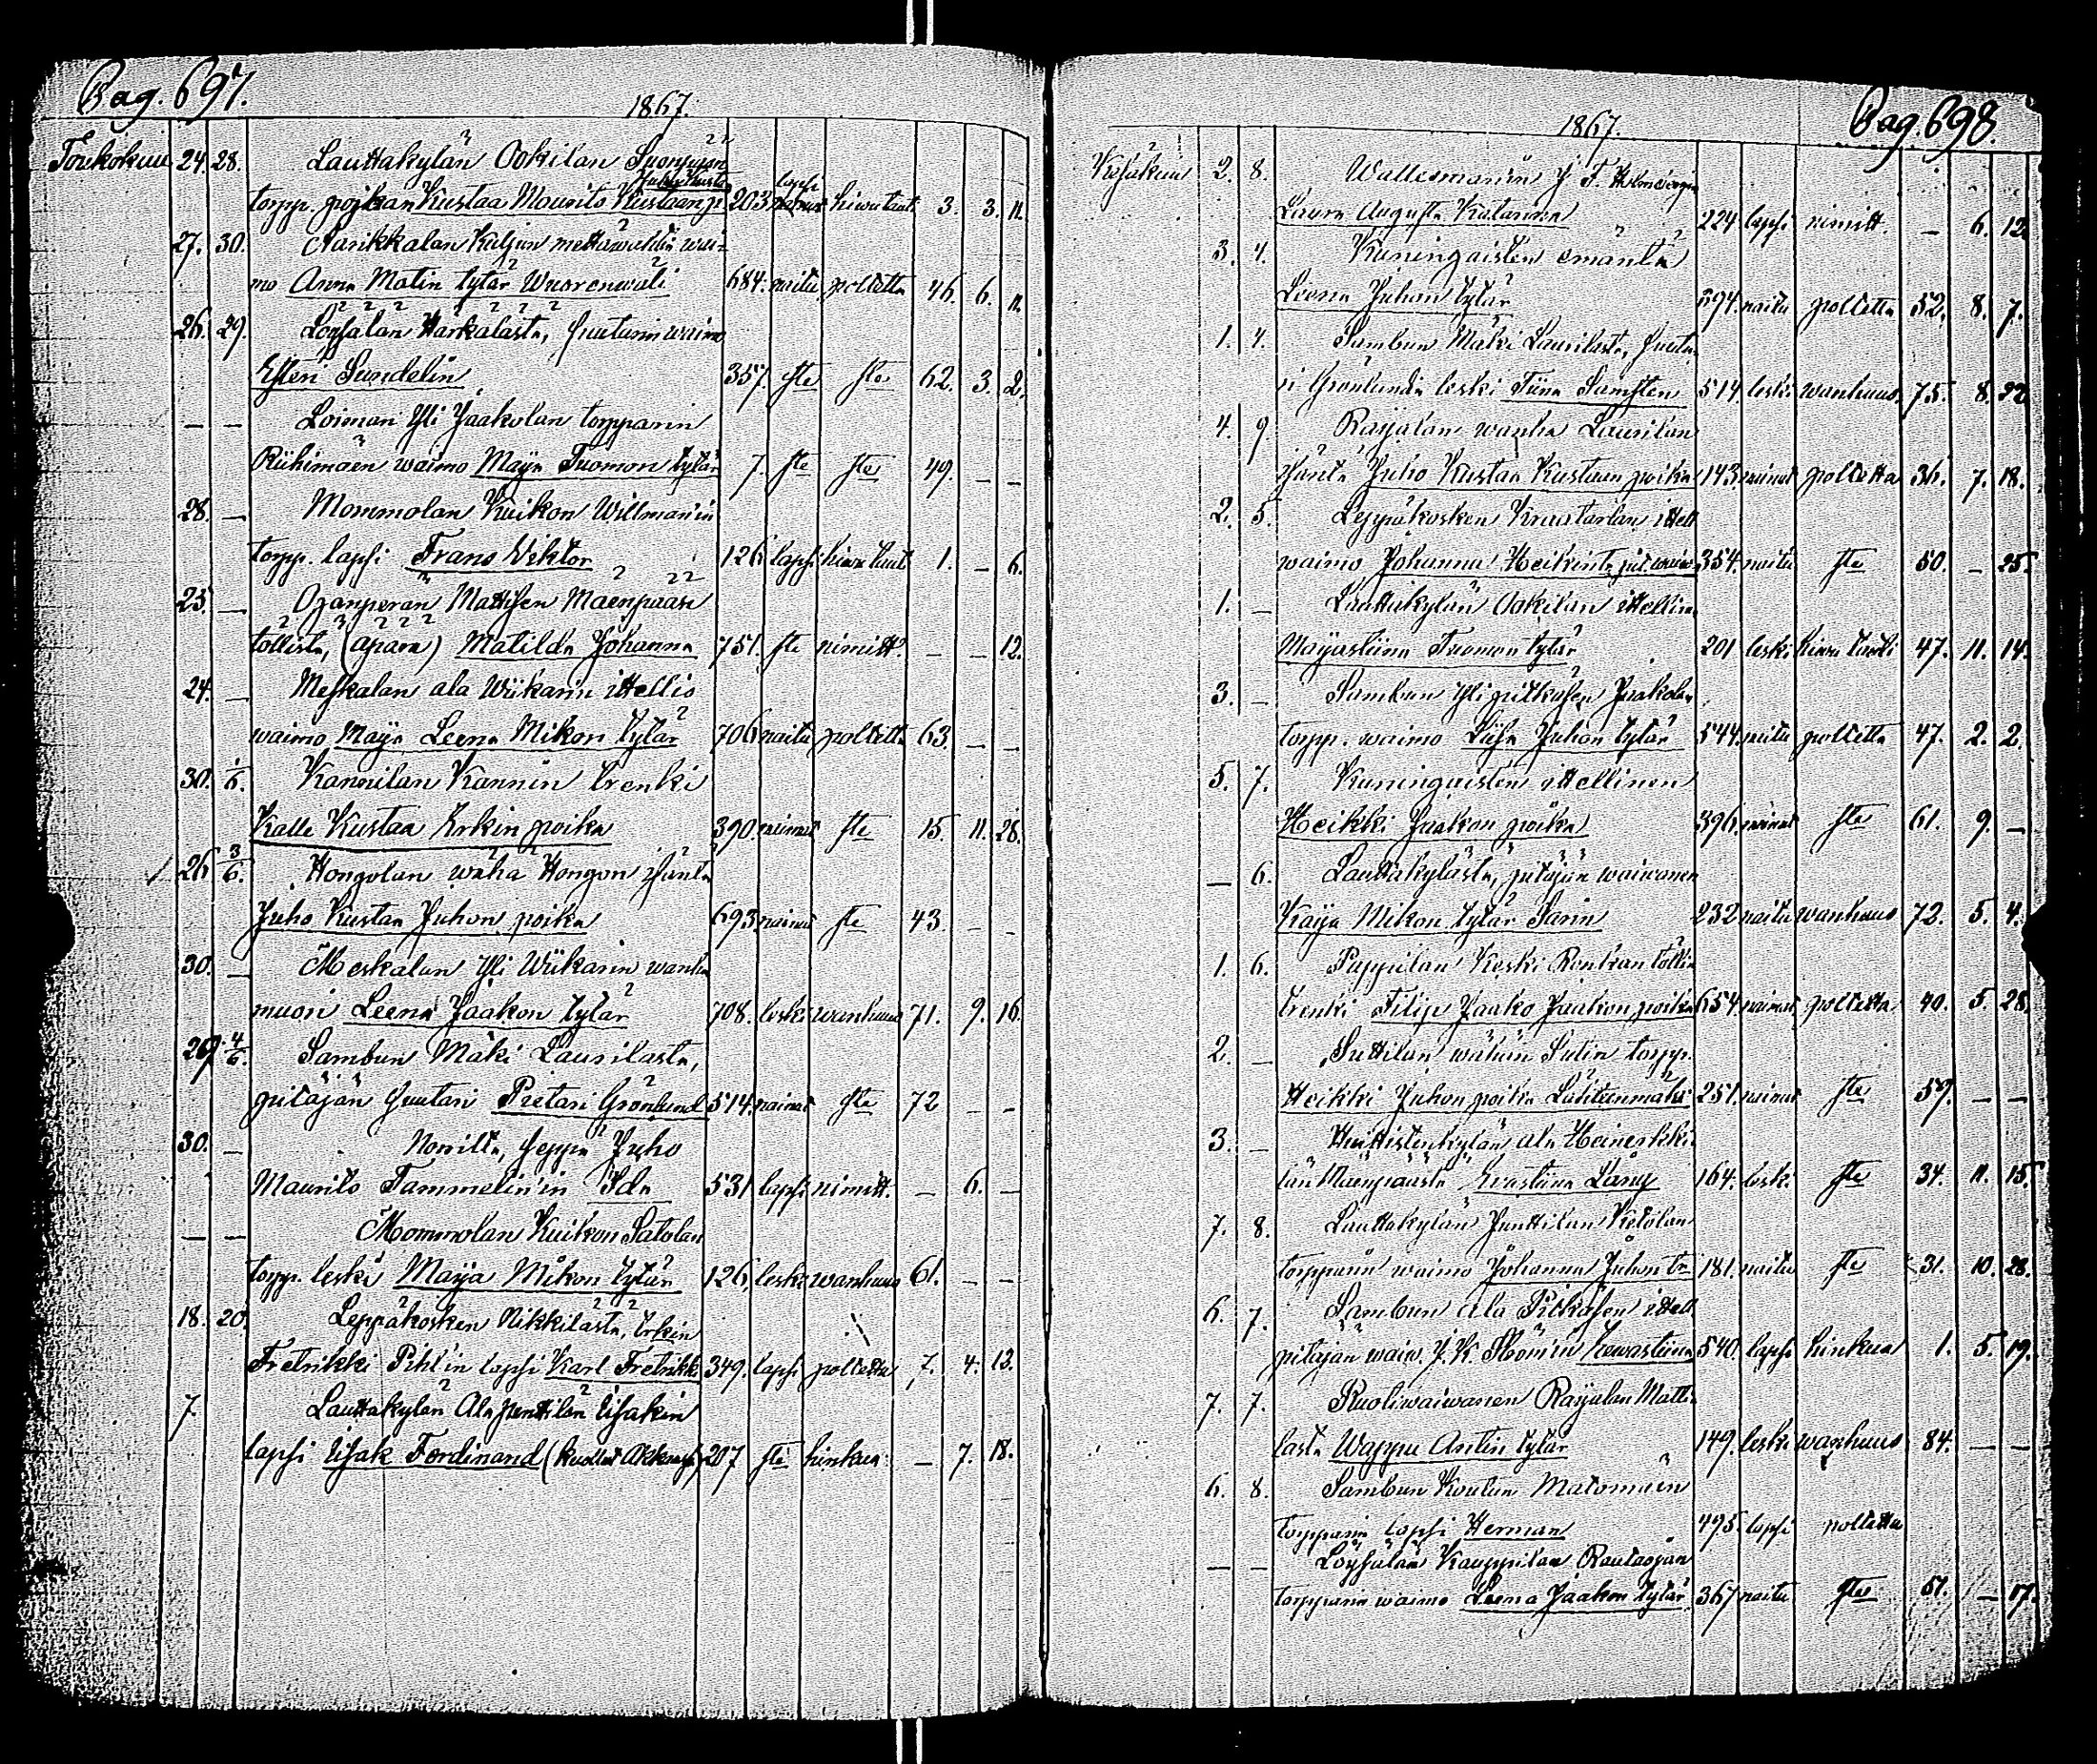 Pag. 697.
1867.
Toukokuu 24. 28. Lauttakylän Ookilan Suonpään
Juho Kusta
torpp. pojkan Kustaa Maurits Kustaanp. 203 lapsi hiwutaut. 3. 3. 11.
27. 30. Sarikkalan Kuljun mettäwahdin wai-
mo Anna Matin tytär Wuorenwäli 684. naitu poltetta 46. 6. 11.
26. 29. Loysälän Härkälästä, suutarin waimo
Esteri Sundelin 357. ste ste 62. 3. 2.
— — Loiman Yli Jaakolan torpparin
Riihimäen waimo Maija Tuomon tytär 7. ste ste 49. — —
28. — Mommolan Kuikon Willmanin
torpp. lapsi Frans Viktor 126 lapsi hiwutaut 1. — 6.
25. — Ojanperän Mattisen Mäenpään
töllistä, (äpärä) Matilda Johanna 751. ste nimitt. — — 12.
24. — Meskalan ala Wiikarin ittellis
waimo Maija Leena Mikon tytär 706 naitu poltetta 63. — —
30. 1/6. Kannilan Kannin trenki
Kalle Kustaa Erkin poika 390. nainut ste 15. 11. 28.
26 3/6. Hongolan wähä Hongon isäntä
Juho Kustaa Juhon poika 693 nainut ste 43 — —
30. — Meskalan Yli Wiikarin wanha
muori Leena Jaakon tytär 708. leski wanhuus 71. 9. 16.
29. 4/6. Sambun Mäki Laurilasta,
pitäjän suutari Pietari Grönlund 514. nainut ste 72 — —
30. — Norilta, seppä Juho
Maurits Tammelin'in Ida 531 lapsi nimitt. — 6. —
— — Mommolan Kuikon Satolan
torpp. leski Maija Mikon tytär 126, leski wanhuus 61. — —
18. 20. Leppäkosken Nikkilästä, Erkin
Fretrikki Pihl'in lapsi Karl Fretrikki 349. lapsi poltetta 7. 4. 13.
7. Lauttakylän Ala Junttilan Eisakin
lapsi Eisak Ferdinand (kuollut Akkaas) 207 ste hinkua — 7. 18.
Pag. 698.
1867.
Kesäkuu 2. 8. Wallesmanin J. F. Holmbergin
Laura Augusta Katarina 224. lapsi nimitt. — 6. 12.
3. 4. Kuningaisten emäntä
Leena Juhan tytär 394. naitu poltetta 52. 8. 7.
1. 4. Sambun Mäki Laurilasta, suuta-
ri Grönlundin leski Tiina Samsten 514 leski wanhuus. 75. 8. 22
4. 9. Raijalan wanha Laurilan
isäntä Juho Kustaa Kustaan poika 143. nainut poltetta 36. 7. 18.
2. 5. Leppäkosken Kraatarlan ittell
waimo Johanna Heikint. pit. waiw. 354. naitu ste 50. — 25.
1. — Lauttakylän Ookilan ittellin.
Maijastiina Tuomon tytär 201 leski hiwu tauti 47. 11. 14.
3. — Sambun Yli pitkäsen Jaakolan
torpp. waimo Liisa Juhan tytär 544. naitu poltetta 47. 2. 2.
5. 7. Kuninguisten ittellinen
Heikki Jaakon poika 396. nainut ste 61. 9. —
— 6. Lauttakylästä, pitäjän waiwanen
Kaija Mikon tytär Sarin 232 naitu wanhuus 72. 5. 4.
1. 6. Pappilan Keski Ronkan töllin
trenki Filip Jaako Jaakon poika 654. nainut poltetta 40. 5. 28.
2. — Suttilan wähän Sutin torpp.
Heikki Juhon poika Lähteenmäki 251. nainut ste 59. — —
3. — Huittistenkylän ala Heinerkki-
län Mäenpäästä Ewastiina Lång 164. leski ste 34. 11. 15.
7. 8. Lauttakylän Junttilan Ketolan
torpparin waimo Johanna Juhon tr. 181. naitu ste 31. 10. 28.
6. 7. Sambun ala Pitkäsen ittell
pitäjän waiw. J. K. Sköminin Eewastiina 540. lapsi hinkua 1. 5. 19.
7. 7. Ruotiwaiwanen Raijalan Matti-
lasta Wappu Antin tytär 149. leski wanhuus 84. — —
6. 8. Sambun Koutun Matomäen
torpparin lapsi Herman 495. lapsi poltetta
— — Loysälän Kauppilan Rautaojan
torpparin waimo Leena Jaakon tytär 367 naitu ste 51. — 17.